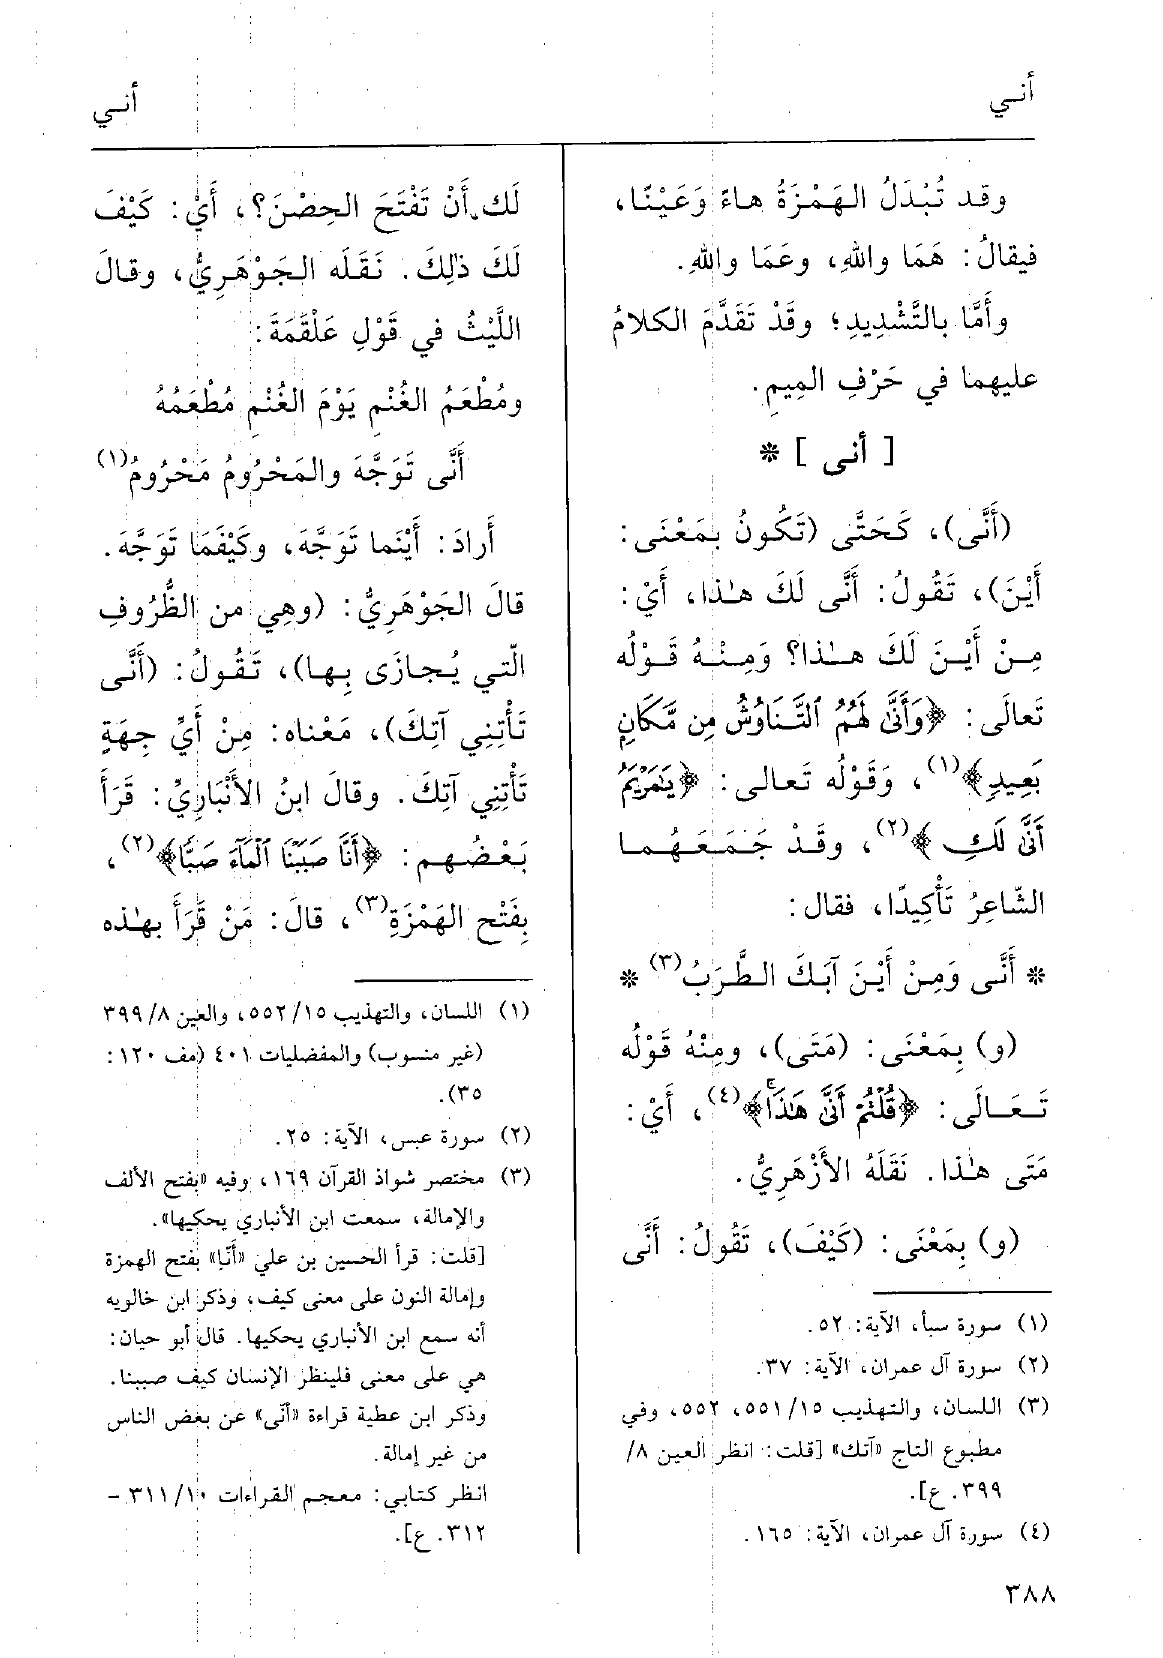 أنـي
أنـي
وقد تُبْدَلُ الهَمْزَةُ هاءً وَعَيْنًا،
فيقالُ: هَمَا واللهِ، وعَمَا واللهِ.
وأَمَّا بالتَّشْدِيدِ؛ وقَدْ تَقَدَّمَ الكلامُ
عليهما في حَرْفِ الميمِ.
[ أنى ] *
(أَنَّى)، كَحَتَّى (تَكُونُ بمَعْنَى:
أَيْنَ)، تَقُولُ: أَنَّى لَكَ هـٰذا، أَيْ:
مِـنْ أَيْـنَ لَكَ هـٰذا؟ وَمِنْـهُ قَـوْلُه
تَعالَى: ﴿وَأَنَّىٰ لَهُمُ ٱلتَّنَاوُشُ مِن مَّكَانٍ
بَعِيدٍ﴾(١)، وَقَوْلُه تَعالى: ﴿يَٰمَرْيَمُ
أَنَّىٰ لَكِ﴾(٢)، وقَدْ جَـمَـعَـهُـما
الشّاعِرُ تَأْكِيدًا، فقال:
* أَنَّى وَمِنْ أَيْنَ آبَكَ الطَّرَبُ(٣) *
(و) بِمَعْنَى: (مَتَى)، ومِنْهُ قَوْلُه
تَـعَـالَى: ﴿قُلْتُمْ أَنَّىٰ هَٰذَا ۚ﴾(٤)، أَيْ:
مَتَى هـٰذا. نَقَلَهُ الأَزْهَرِيُّ.
(و) بِمَعْنَى: (كَيْفَ)، تَقُولُ: أَنَّى
(١) سورة سبأ، الآية: ٥٢.
(٢) سورة آل عمران، الآية: ٣٧.
(٣) اللسان، والتهذيب ١٥/ ٥٥١، ٥٥٢، وفي
مطبوع التاج «آتك» [قلت: انظر العين ٨/
٣٩٩. ع].
(٤) سورة آل عمران، الآية: ١٦٥.
لَك أَنْ تَفْتَحَ الحِصْنَ؟، أَيْ: كَيْفَ
لَكَ ذٰلِكَ. نَقَلَه الجَوْهَرِيُّ، وقالَ
اللَّيْثُ في قَوْلِ عَلْقَمَةَ:
ومُطْعَمُ الغُنْمِ يَوْمَ الغُنْمِ مُطْعَمُهُ
أَنَّى تَوَجَّهَ والمَحْرُومُ مَحْرُومُ(١)
أَرادَ: أَيْنَما تَوَجَّهَ، وكَيْفَمَا تَوَجَّهَ.
قالَ الجَوْهَرِيُّ: (وهِي من الظُّرُوفِ
الّتي يُـجازَى بِـها)، تَـقُـولُ: (أَنَّى
تَأْتِنِي آتِكَ)، مَعْناه: مِنْ أَيِّ جِهَةٍ
تَأْتِنِي آتِكَ. وقالَ ابنُ الأَنْبَارِيِّ: قَرَأَ
بَعْضُـهم: ﴿أَنَّا صَبَبْنَا ٱلْمَآءَ صَبًّا﴾(٢)،
بِفَتْحِ الهَمْزَةِ(٣)، قالَ: مَنْ قَرَأَ بهٰذه
(١) اللسان، والتهذيب ١٥/ ٥٥٢، والعين ٨/ ٣٩٩
(غير منسوب) والمفضليات ٤٠١ (مف ١٢٠:
٣٥).
(٢) سورة عبس، الآية: ٢٥.
(٣) مختصر شواذ القرآن ١٦٩، وفيه «بفتح الألف
والإمالة، سمعت ابن الأنباري يحكيها».
[قلت: قرأ الحسين بن علي «أنّا» بفتح الهمزة
وإمالة النون على معنى كيف، وذكر ابن خالويه
أنه سمع ابن الأنباري يحكيها. قال أبو حيان:
هي على معنى فلينظر الإنسان كيف صببنا.
وذكر ابن عطية قراءة «أنّى» عن بعض الناس
من غير إمالة.
انظر كتابي: معجم القراءات ١٠/ ٣١١ -
٣١٢. ع].
٣٨٨